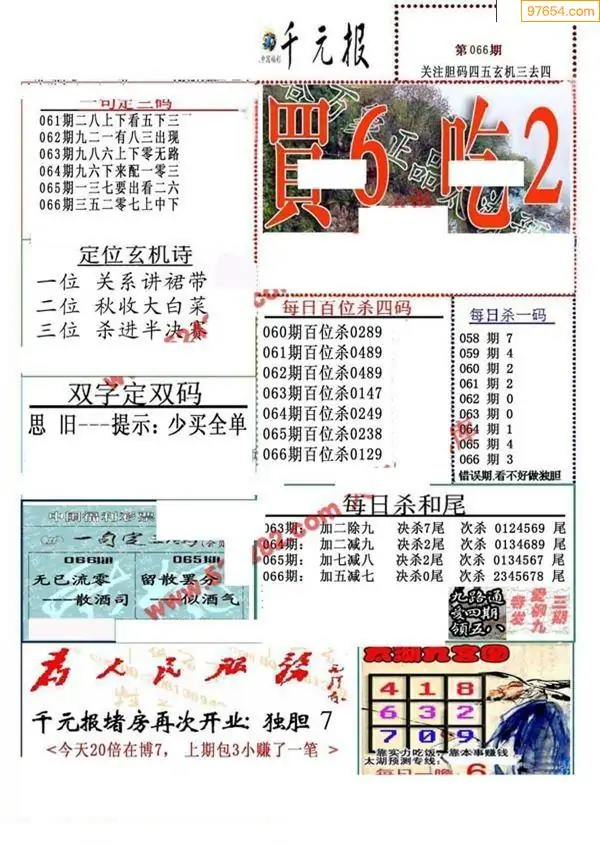 97654.com
千元报
第066期
关注胆码四五玄机三去四
一句定三码
061期二八上下看五下三
062期九二一有八三出现
063期九八六上下零无路
064期九六下来配一零三
065期一三七要出看二六
066期三五二零七上中下
買6吃2
定位玄机诗
一位 关系讲裙带
二位 秋收大白菜
三位 杀进半决赛
每日百位杀四码
060期百位杀0289
061期百位杀0489
062期百位杀0489
063期百位杀0147
064期百位杀0249
065期百位杀0238
066期百位杀0129
每日杀一码
058 期 7
059 期 4
060 期 2
061 期 2
062 期 0
063 期 0
064 期 1
065 期 4
066 期 3
错误期.看不好做独胆
双字定双码
思 旧---提示:少买全单
中国福利彩票
一句定三
066期
065期
无已流零
----散酒司
留散罢分
----似酒气
每日杀和尾
063期: 加二除九 决杀7尾 次杀 0124569 尾
064期: 加二减九 决杀2尾 次杀 0134689 尾
065期: 加七减八 决杀2尾 次杀 0134567 尾
066期: 加五减七 决杀0尾 次杀 2345678 尾
九路通
爱四期
领五八
三期
爱柳九
奇发
为人民服务
千元报堵房再次开业:独胆 7
<今天20倍在博7, 上期包3小赚了一笔 >
太湖九宫图
4 1 8
6 3 2
7 0 9
靠实力吃饭,靠本事赚钱
太湖预测专线:
每日一胆 6